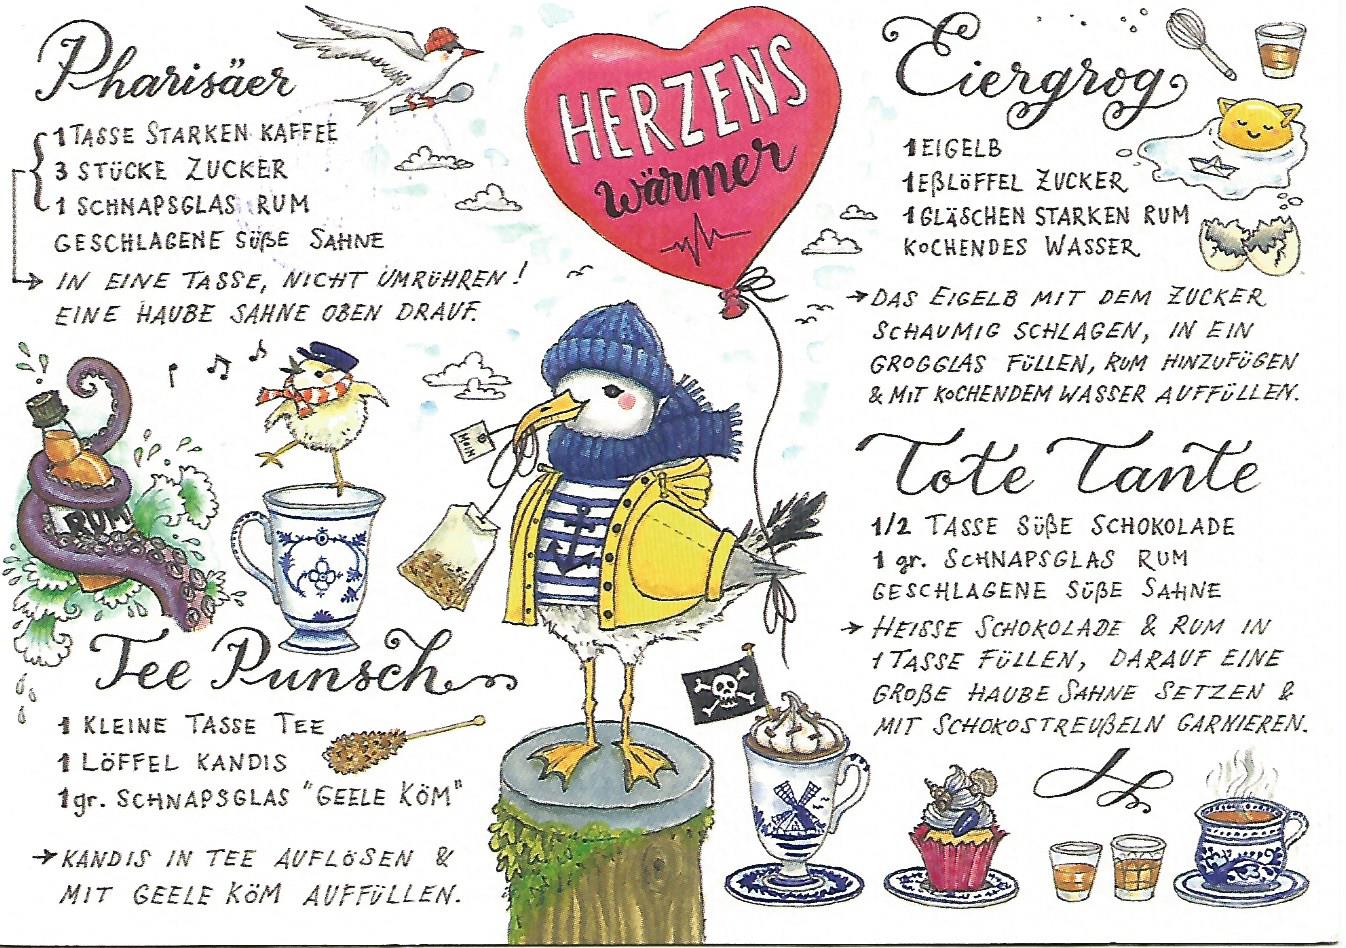 Pharisäer
1 TASSE STARKEN KAFFEE
3 STÜCKE ZUCKER
1 SCHNAPSGLAS RUM
GESCHLAGENE SÜßE SAHNE
IN EINE TASSE, NICHT UMRÜHREN!
EINE HAUBE SAHNE OBEN DRAUF.
HERZENS
wärmer
Eiergrog
1 EIGELB
1 EßLÖFFEL ZUCKER
1 GLÄSCHEN STARKEN RUM
KOCHENDES WASSER
DAS EIGELB MIT DEM ZUCKER
SCHAUMIG SCHLAGEN, IN EIN
GROGGLAS FÜLLEN, RUM HINZUFÜGEN
& MIT KOCHENDEM WASSER AUFFÜLLEN.
RUM
MOIN
Tee Punsch
1 KLEINE TASSE TEE
1 LÖFFEL KANDIS
1 gr. SCHNAPSGLAS "GEELE KÖM"
KANDIS IN TEE AUFLÖSEN &
MIT GEELE KÖM AUFFÜLLEN.
Tote Tante
1/2 TASSE SÜßE SCHOKOLADE
1 gr. SCHNAPSGLAS RUM
GESCHLAGENE SÜßE SAHNE
HEISSE SCHOKOLADE & RUM IN
1 TASSE FÜLLEN, DARAUF EINE
GROßE HAUBE SAHNE SETZEN &
MIT SCHOKOSTREUßELN GARNIEREN.